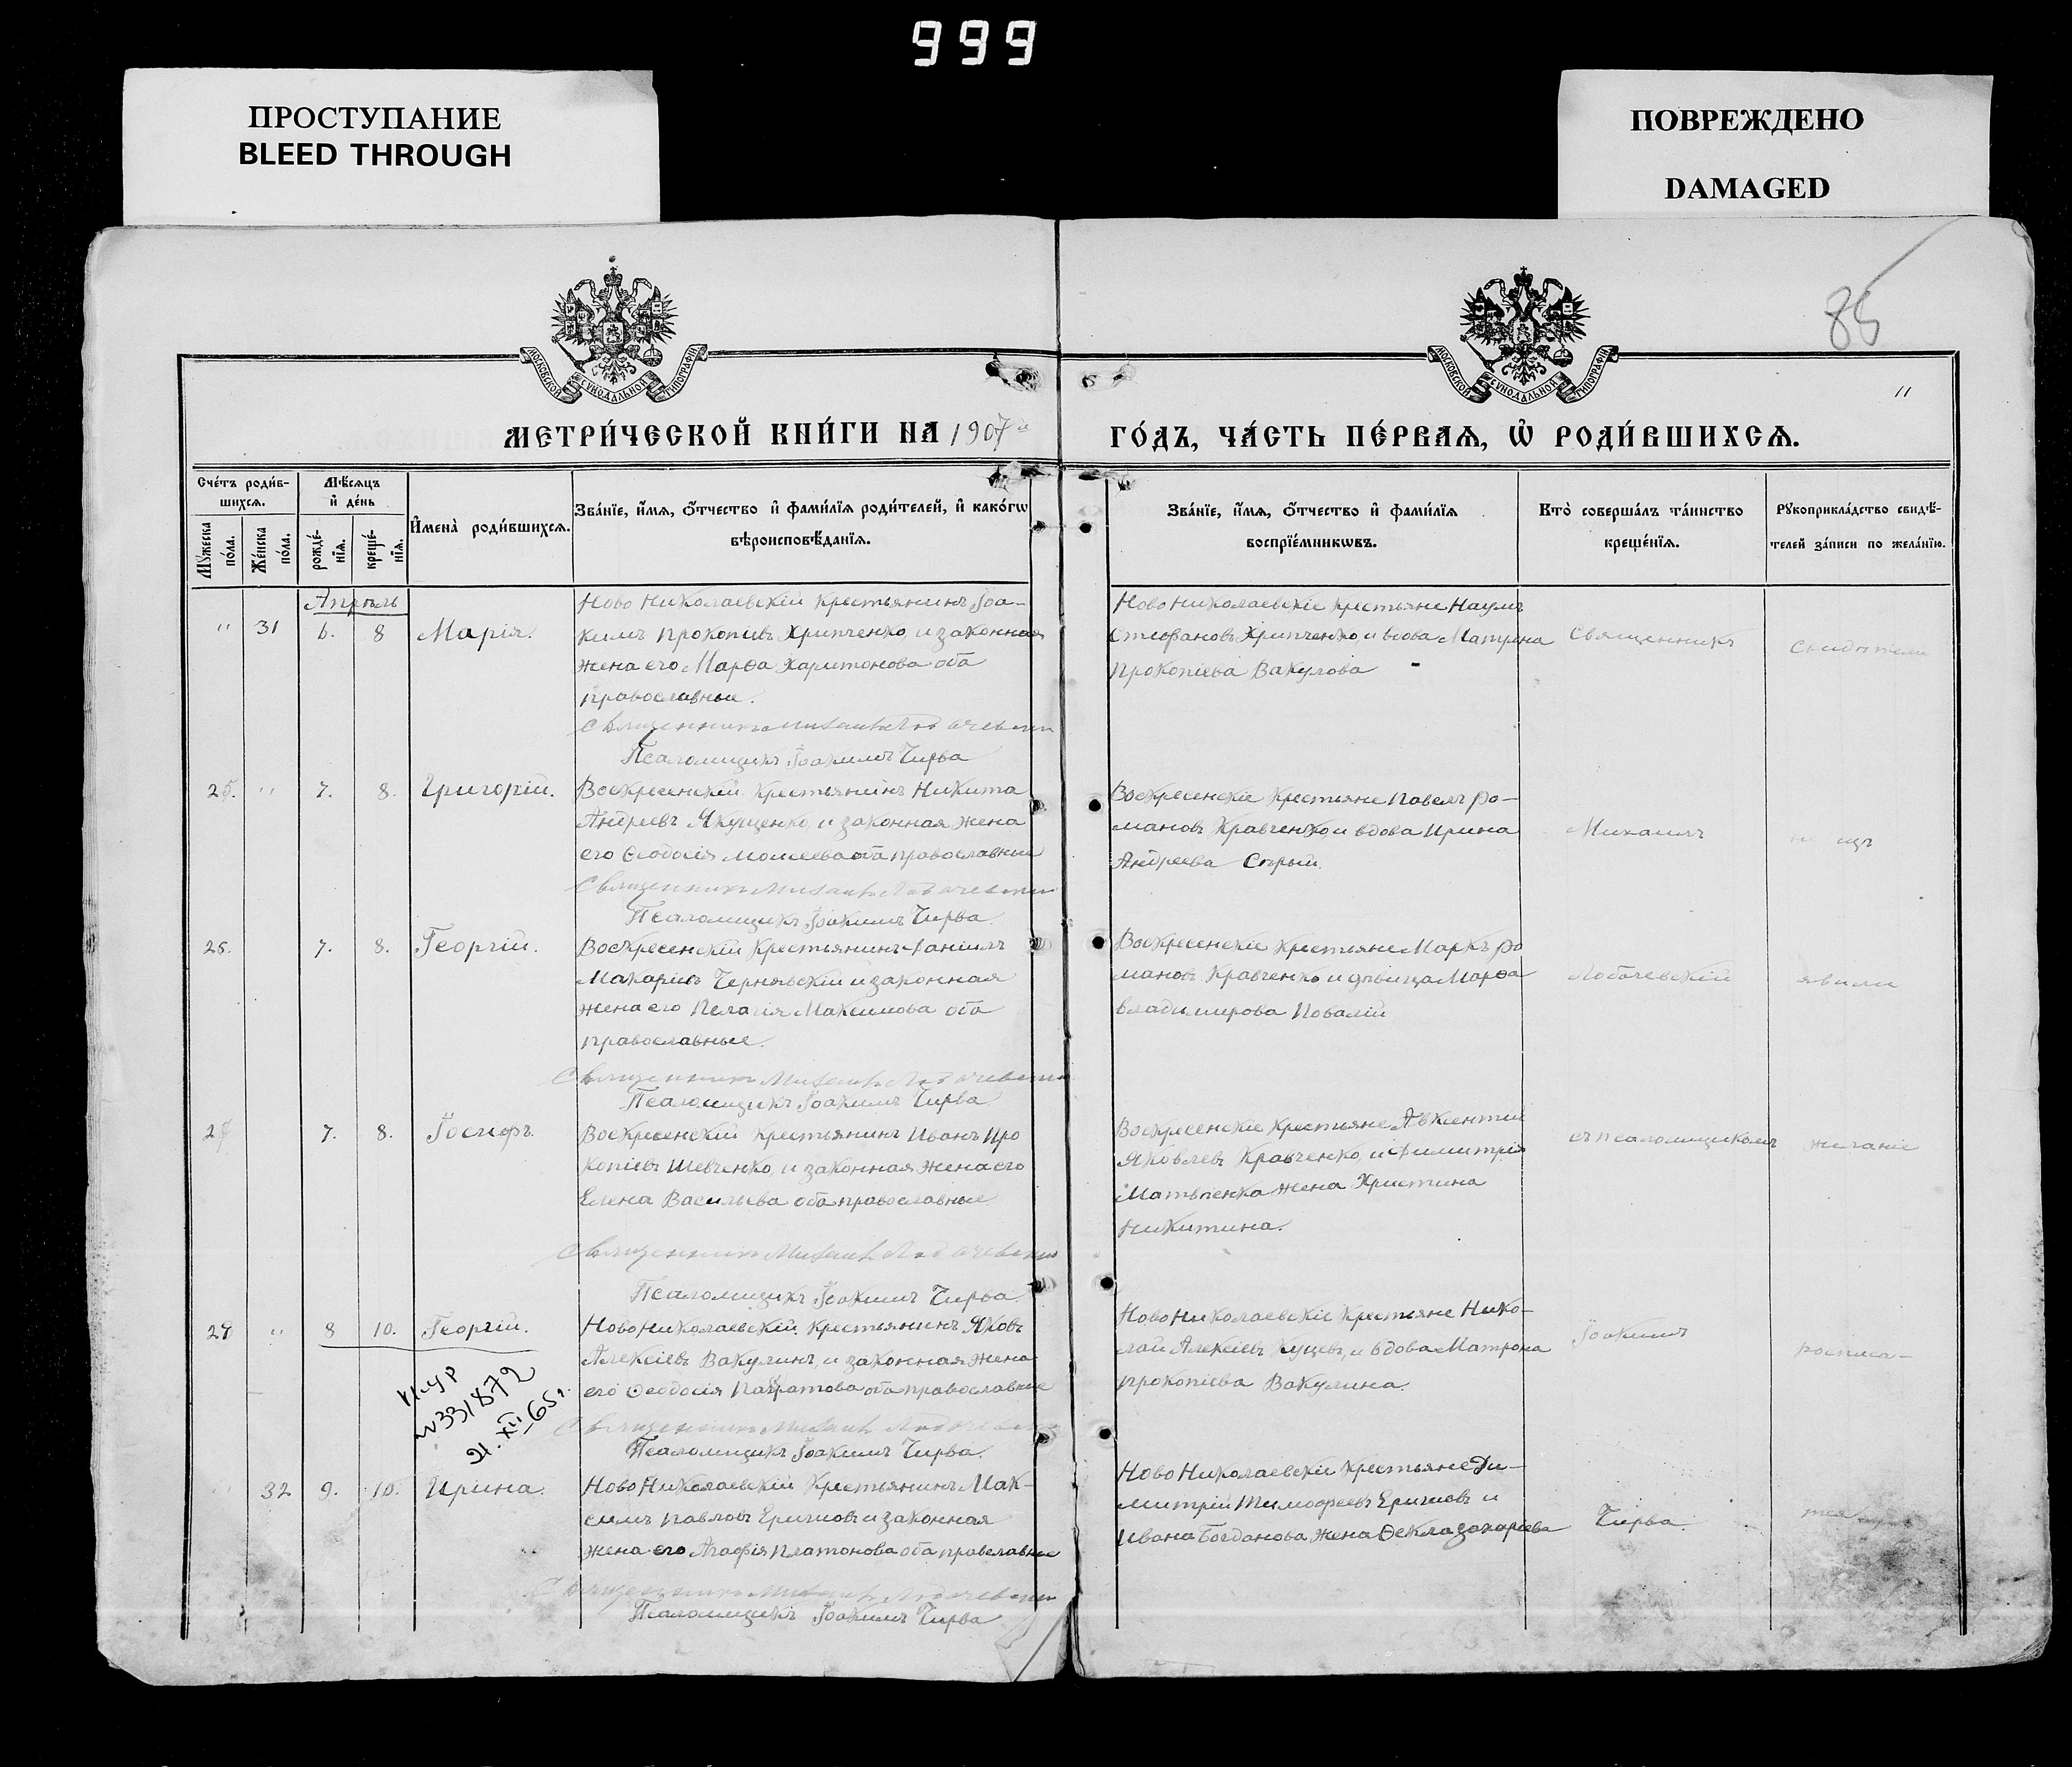 999
ПРОСТУПАНИЕ
BLEED THROUGH
ПОВРЕЖДЕНО
DAMAGED
МОСКОВСКОЙ СѴНОДАЛЬНОЙ ТИПОГРАФІИ
МОСКОВСКОЙ СѴНОДАЛЬНОЙ ТИПОГРАФІИ
85
11
МЕТРИ́ЧЕСКОЙ КНИ́ГИ НА 1907й
ГО́ДЪ, ЧА́СТЬ ПЕ́РВАѦ, Ѡ҆ РОДИ́ВШИХСѦ.
Сче́тъ роди́в-
шихсѧ.
Мꙋ́жеска по́ла.
Же́нска по́ла.
Мѣ́сѧцъ
и҆ де́нь
рожде́-
нїѧ.
креще́-
нїѧ.
И҆мена̀ роди́вшихсѧ.
Зва́нїе, и҆́мѧ, ѻ҆́тчество и҆ фамѝлїѧ роди́телей, и҆ како́гѡ
вѣроисповѣ́данїѧ.
Зва́нїе, и҆́мѧ, ѻ҆́тчество и҆ фами́лїѧ
воспрїе́мникѡвъ.
Кто̀ соверша́лъ та́инство
креще́нїѧ.
Рꙋкоприкла́дство свидѣ́-
телей за́писи по жела́нїю.
Апрѣль
" 31 6. 8 Марія.
Ново Николаевскій крестьянинъ Іоа-
кимъ Прокопіевъ Хрипченко, и законная
жена его Марѳа Харитонова оба
православные.
Священникъ Михаилъ Лобачевскій
Псаломщикъ Іоакимъ Чирва
Ново Николаевскіе крестьяне Наумъ
Стефановъ Хрипченко и вдова Матрона
Прокопіева Вакулова
Священникъ
Свидѣтели
25. " 7. 8. Григорій.
Воскресенскій крестьянинъ Никита
Андреевъ Якущенко, и законная жена
его Ѳеодосія Моисеева оба православные
Священникъ Михаилъ Лобачевскій
Псаломщикъ Іоакимъ Чирва
Воскресенскіе крестьяне Павелъ Ро-
мановъ Кравченко, и вдова Ирина
Андреева Сѣрый.
Михаилъ
26. 7. 8. Георгій.
Воскресенскій крестьянинъ Даніилъ
Макаріевъ Чернявскій и законная
жена его Пелагія Максимова оба
православные.
Священникъ Михаилъ Лобачевскій
Псаломщикъ Іоакимъ Чирва
Воскресенскіе крестьяне Маркъ Ро
мановъ Кравченко и дѣвица Марѳа
Владимирова Повалій
Лобачевскій
явили
7. 8. Іосифъ.
Воскресенскій крестьянинъ Иванъ Про
копіевъ Шевченко, и законная жена его
Елена Васильева оба православные
Священникъ Михаилъ Лобачевскій
Псаломщикъ Іоакимъ Чирва
Воскресенскіе крестьяне Авксентій
Яковлевъ Кравченко, и Димитрія
Матвѣенка жена Христина
Никитина.
съ псаломщикомъ
желаніе
" 8 10. Георгій.
Ново Николаевскій крестьянинъ Яковъ
Алексіевъ Вакулинъ, и законная жена
его Ѳеодосія оба православные
Священникъ Михаилъ Лобачевскій
Псаломщикъ Іоакимъ Чирва.
№ 331872
21.XII-65 г.
Ново Николаевскіе крестьяне Нико-
лай Алексіевъ Куцевъ, и вдова Матрона
Прокопіева Вакулина.
Іоакимъ
росписа-
32 9. 10. Ирина.
Ново Николаевскій крестьянинъ Мак-
симъ Павловъ Ериховъ и законная
жена его Агафія Платонова оба православные
Священникъ Михаилъ Лобачевскій
Псаломщикъ Іоакимъ Чирва
Ново Николаевскіе крестьяне Ди-
митрій Тимофеевъ Ериховъ и
Ивана Богданова жена Ѳекла Захаріева
Чирва.
тся